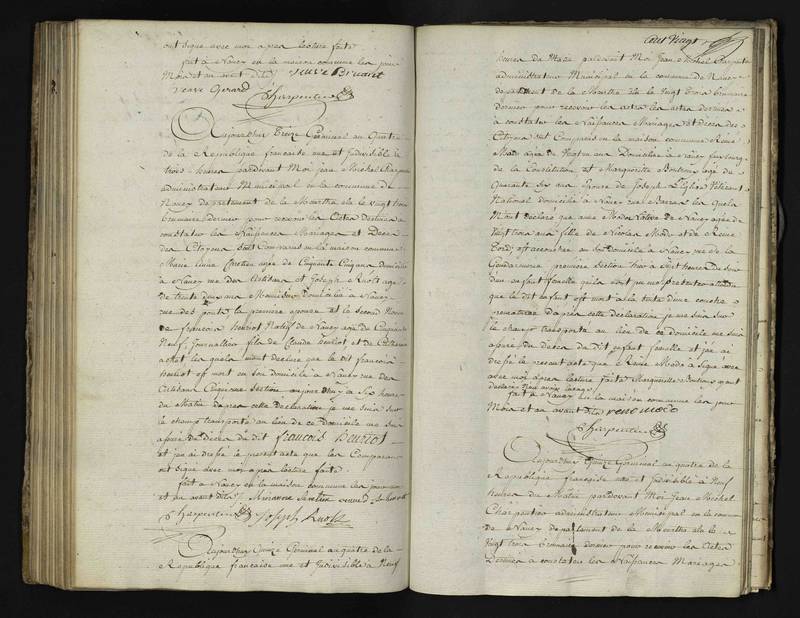 ont signé avec moi après lecture faite
fait à Nancy en la maison commune les jour
Mois et an avant dits veuve Briart
veuve Gerard
Charpentier
Aujourdhuy Treize Germinal an Quatre
de la Republique francaise une et Indivisible à
trois heures pardevant Moi jean Michel Charpentier
administrateur Municipal en la commune de
Nancy departement de la Meurthe élu le vingt trois
brumaire dernier pour recevoir les Actes destinés à
constater les Naissances Mariages et Décès
des Citoyens sont Comparus en la maison commune
Marie Anne agée de Cinquante Cinq ans domiciliée
à Nancy rue des Artisans et Joseph Knoll agé
de trente deux ans Menuisier Domicilié à Nancy
rue des ponts la premiere epouse et le second
de francois henriot Natif de Nancy agé de Cinquante
Neuf, journallier fils de Claude henriot, et de Catherine
lesquels mont declaré que le dit francois
henriot est mort en son domicile à Nancy rue des
Artisans Cinquieme Section aujourdhuy à Six heures
du Matin dapres cette declaration je me suis sur
le champ transporté au lieu de ce Domicile me suis
assuré du Décès du dit francois henriot
et jai dressé le present acte que les Comparants
ont signé avec moi après lecture faite
fait à Nancy en la maison commune les jour mois
et an avant dits
Charpentier Joseph Knoll
Aujourdhuy Quinze Germinal an quatre de la
Republique francaise une et Indivisible à Neuf
Cent Vingt
heures du Matin pardevant Moi Jean Michel Charpentier
administrateur Municipal en la commune de Nancy
departement de la Meurthe élu le Vingt trois brumaire
dernier pour recevoir les actes destinés
à constater les Naissances Mariages et Décès des
Citoyens sont Comparus en la maison commune René
Mord agé de ans Domicilié à Nancy fauxbourg
de la Constitution et Marguerite agée de
Quarante Six ans Epouse de Joseph L'Eglise Vétéran
National domiciliée à Nancy rue lesquels
Mont declaré que Mord Native de Nancy agée de
Vingt trois ans fille de Nicolas Mord, et de Reine
est accouchée au domicile à Nancy rue de la
Gendarmerie premiere Section hier à huit heures du Soir
dun enfant femelle quils nont pu me presenter attendu
que le dit enfant est mort à la suite dune couche
prematurée dapres cette declaration je me suis sur
le champ transporté au lieu de ce domicile me suis
assuré du décès du Dit enfant femelle et jai
dressé le present acte que René Mord à signé avec
avec moi apres lecture faite Marguerite ayant
declaré n'en avoir l'usage
fait à Nancy en la maison commune les jour
Mois et an avant dits rené mord
Charpentier
Aujourdhuy Quinze Germinal an quatre de la
Republique francaise une et indivisible à Neuf
heures du Matin pardevant Moi Jean Michel
Charpentier administrateur Municipal en la commune
de Nancy departement de la Meurthe élu le
Vingt trois brumaire dernier pour recevoir les Actes
destinés à constater les Naissances Mariages